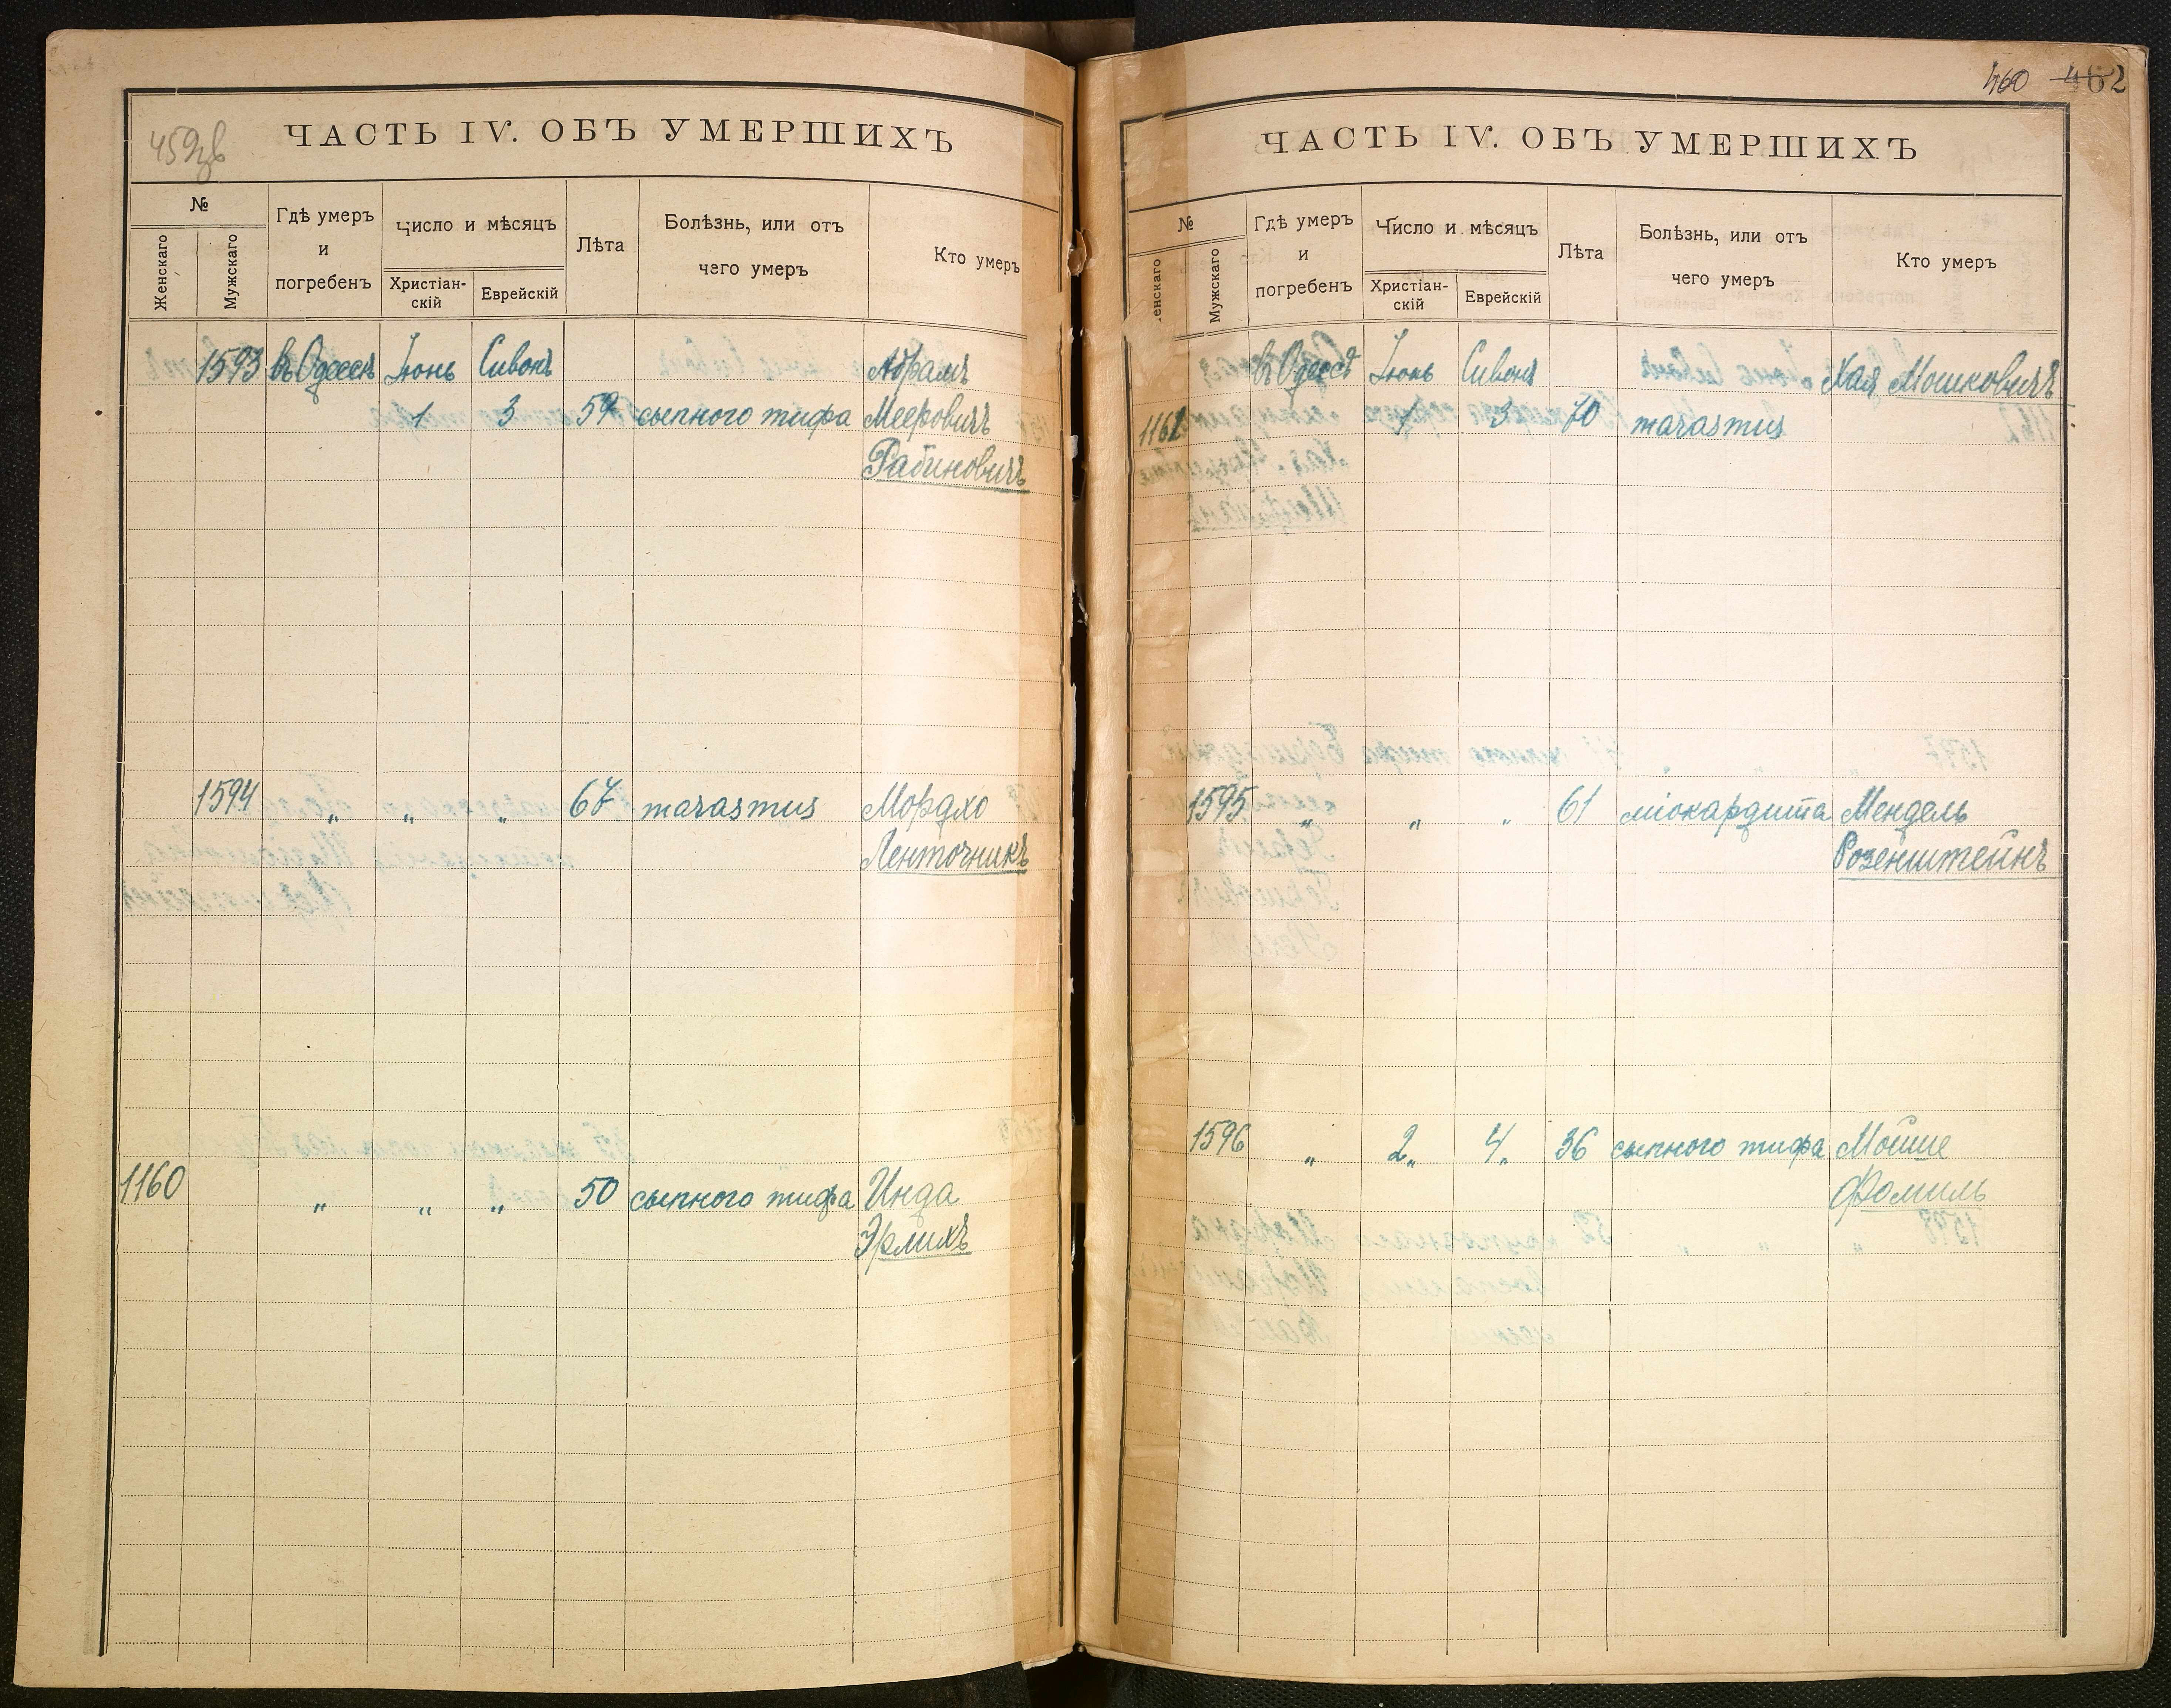 459зв
ЧАСТЬ IV. ОБЪ УМЕРШИХЪ
№
Женскаго
Мужскаго
Гдѣ умеръ
и
погребенъ
Число и мѣсяцъ
Христіан-
скій
Еврейскій
Лѣта
Болѣзнь, или отъ
чего умеръ
Кто умеръ
1593 въ Одессѣ Іюнь Сивонъ Абрамъ
1 3 59 сыпного тифа Мееровичъ
Рабиновичъ
1594 „ „ „ 67 marasmus Мордхо
Ленточникъ
1160 „ „ „ 50 сыпного тифа Инда
Эрлихъ
460 462
ЧАСТЬ IV. ОБЪ УМЕРШИХЪ
№
енскаго
Мужскаго
Гдѣ умеръ
и
погребенъ
Число и мѣсяцъ
Христіан-
скій
Еврейскій
Лѣта
Болѣзнь, или отъ
чего умеръ
Кто умеръ
въ Одессѣ Іюнь Сивонъ Хая Мошковичъ
1161 1 3 70 marasmus
1595 „ „ „ 61 міокардита Мендель
Розенштейнъ
1596 „ 2„ 4„ 36 сыпного тифа Мойше
Фомиль